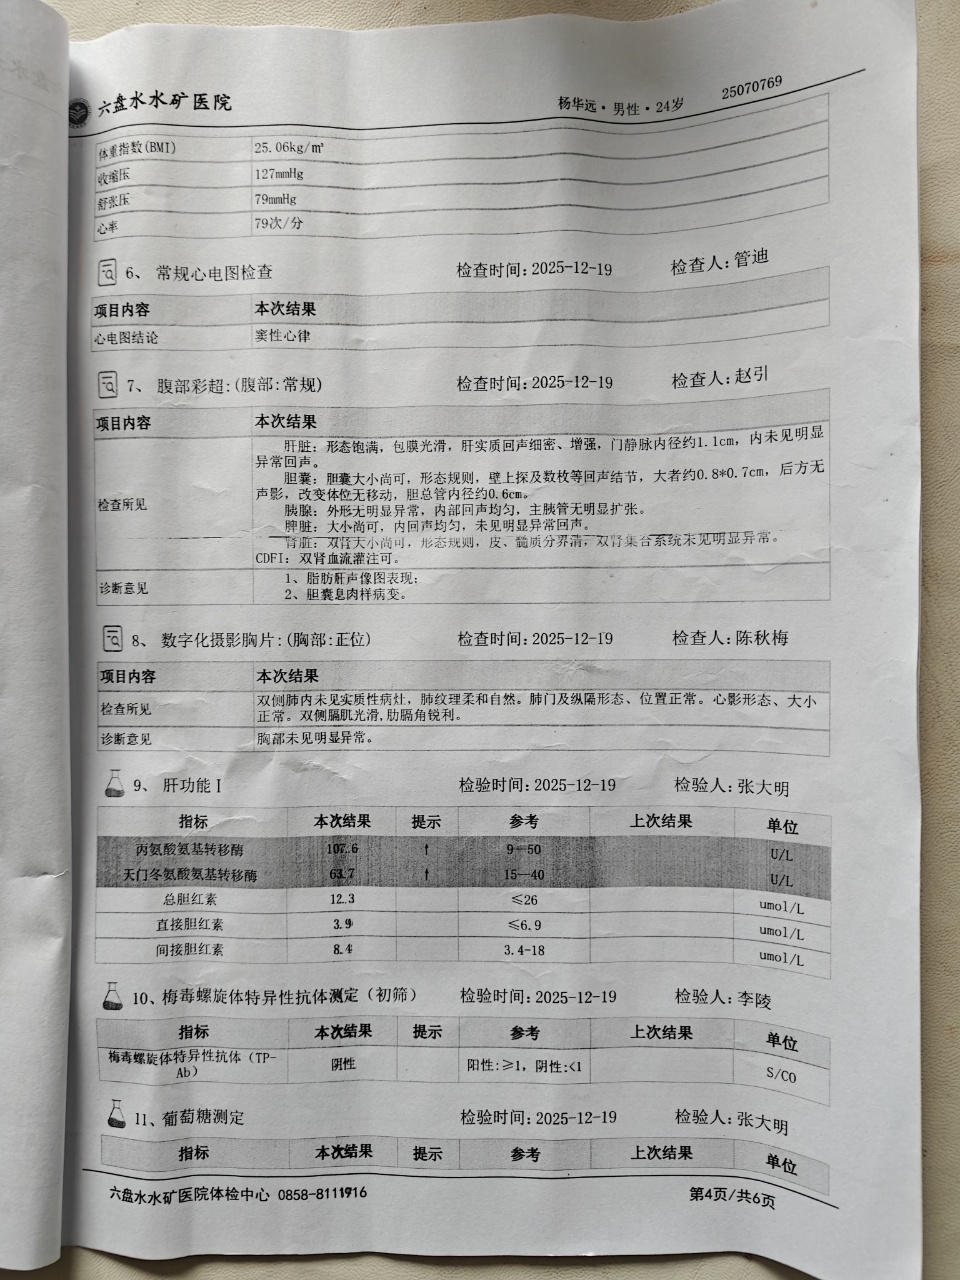 六盘水水矿医院 杨华远·男性·24岁 25070769
体重指数(BMI) 25.06kg/m²
收缩压 127mmHg
舒张压 79mmHg
心率 79次/分
6、常规心电图检查 检查时间:2025-12-19 检查人:管迪
项目内容 本次结果
心电图结论 窦性心律
7、腹部彩超:(腹部:常规) 检查时间:2025-12-19 检查人:赵引
项目内容 本次结果
肝脏: 形态饱满, 包膜光滑, 肝实质回声细密、增强, 门静脉内径约1.1cm, 内未见明显
异常回声。
胆囊: 胆囊大小尚可, 形态规则, 壁上探及数枚等回声结节, 大者约0.8*0.7cm, 后方无
检查所见 声影, 改变体位无移动, 胆总管内径约0.6cm。
胰腺: 外形无明显异常, 内部回声均匀, 主胰管无明显扩张。
脾脏: 大小尚可, 内回声均匀, 未见明显异常回声。
肾脏: 双肾大小尚可, 形态规则, 皮、髓质分界清, 双肾集合系统未见明显异常。
CDFI: 双肾血流灌注可。
诊断意见 1、脂肪肝声像图表现;
2、胆囊息肉样病变。
8、数字化摄影胸片:(胸部:正位) 检查时间:2025-12-19 检查人:陈秋梅
项目内容 本次结果
检查所见 双侧肺内未见实质性病灶, 肺纹理柔和自然。肺门及纵隔形态、位置正常。心影形态、大小
正常。双侧膈肌光滑,肋膈角锐利。
诊断意见 胸部未见明显异常。
9、肝功能Ⅰ 检验时间:2025-12-19 检验人:张大明
指标 本次结果 提示 参考 上次结果 单位
丙氨酸氨基转移酶 107.6 ↑ 9—50 U/L
天门冬氨酸氨基转移酶 63.7 ↑ 15—40 U/L
总胆红素 12.3 ≤26 umol/L
直接胆红素 3.9 ≤6.9 umol/L
间接胆红素 8.4 3.4-18 umol/L
10、梅毒螺旋体特异性抗体测定(初筛) 检验时间:2025-12-19 检验人:李陵
指标 本次结果 提示 参考 上次结果 单位
梅毒螺旋体特异性抗体(TP-
Ab) 阴性 阳性:≥1, 阴性:<1 S/CO
11、葡萄糖测定 检验时间:2025-12-19 检验人:张大明
指标 本次结果 提示 参考 上次结果 单位
六盘水水矿医院体检中心 0858-8111916 第4页/共6页